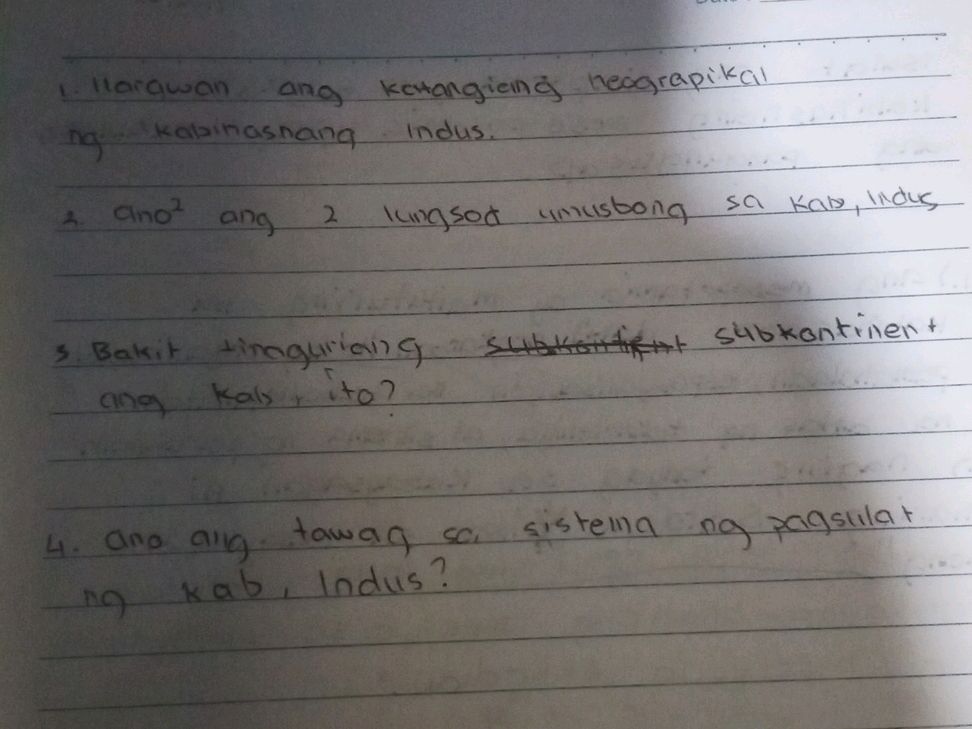 1. Ilarawan ang katangiang heograpikal
ng kabihasnang Indus.
2. ano² ang 2 lungsod umusbong sa Kab, Indus
3. Bakit tinaguriang subkontinent subkontinent
ang kab, ito?
4. ano ang tawag sa sistema ng pagsulat
ng kab, Indus?